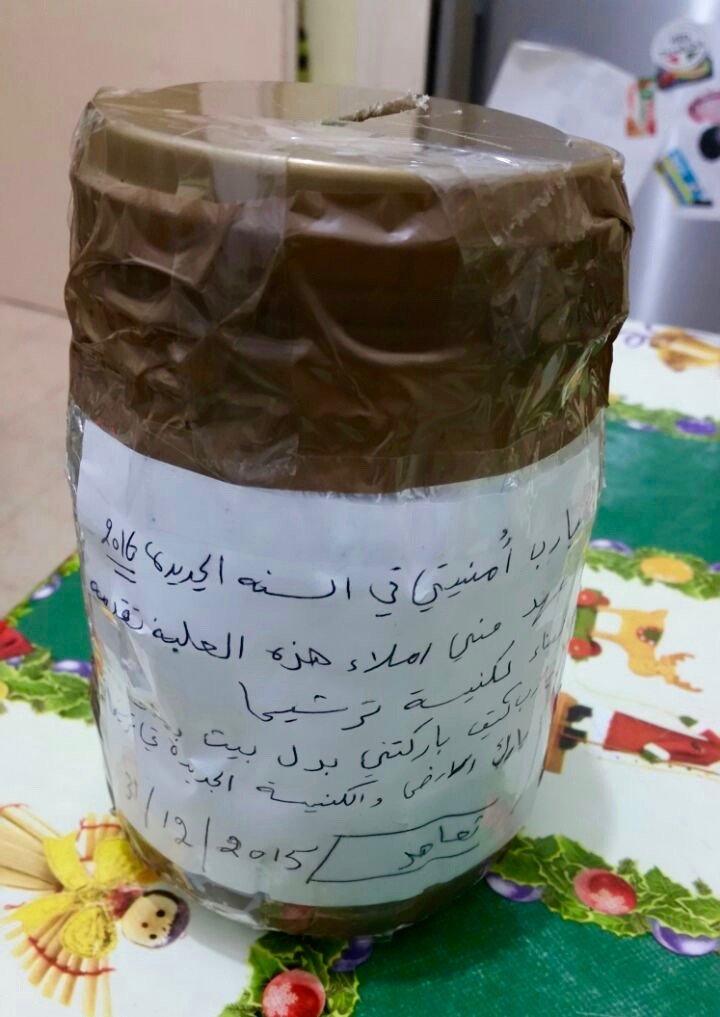 يارب أمنيتي في السنه الجديده 2016
مني املاء هذه العلبة تقدمة
لكنيسة ترشيحا
باركتني بدل بيت
بارك الارض والكنيسة الجديدة في
31/12/2015 تعاهد